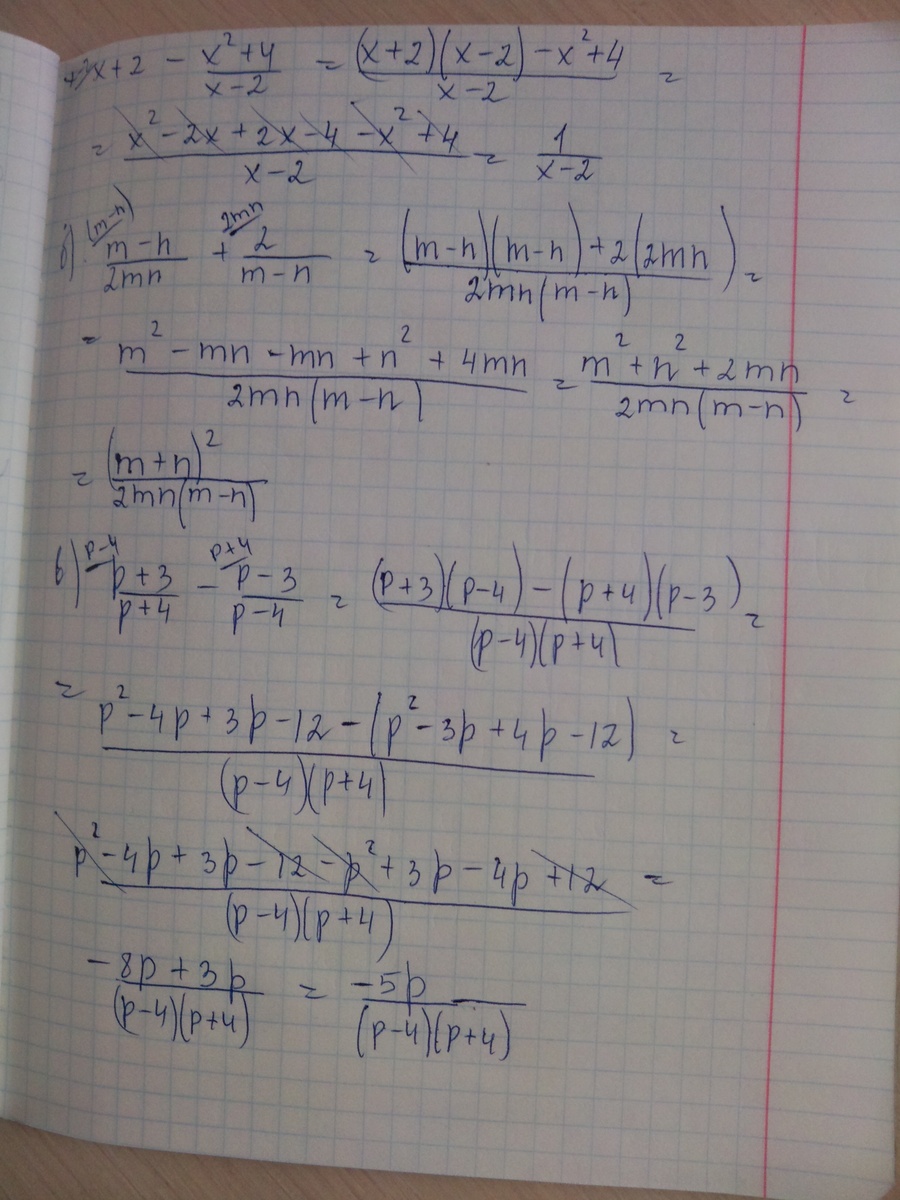 x+2 - (x²+4)/(x-2) = ((x+2)(x-2) - x²+4)/(x-2) =
= (x² - 2x + 2x - 4 - x² + 4)/(x-2) = 1/(x-2)
б) (m-n) (m-n)/(2mn) + 2mn 2/(m-n) = ((m-n)(m-n) + 2(2mn))/(2mn(m-n)) =
= (m² - mn - mn + n² + 4mn)/(2mn(m-n)) = (m² + n² + 2mn)/(2mn(m-n)) =
= (m+n)²/(2mn(m-n))
в) p-4 (p+3)/(p+4) - p+4 (p-3)/(p-4) = ((p+3)(p-4) - (p+4)(p-3))/((p-4)(p+4)) =
= (p² - 4p + 3p - 12 - (p² - 3p + 4p - 12))/((p-4)(p+4)) =
(p² - 4p + 3p - 12 - p² + 3p - 4p + 12)/((p-4)(p+4)) =
(-8p + 3p)/((p-4)(p+4)) = -5p/((p-4)(p+4))